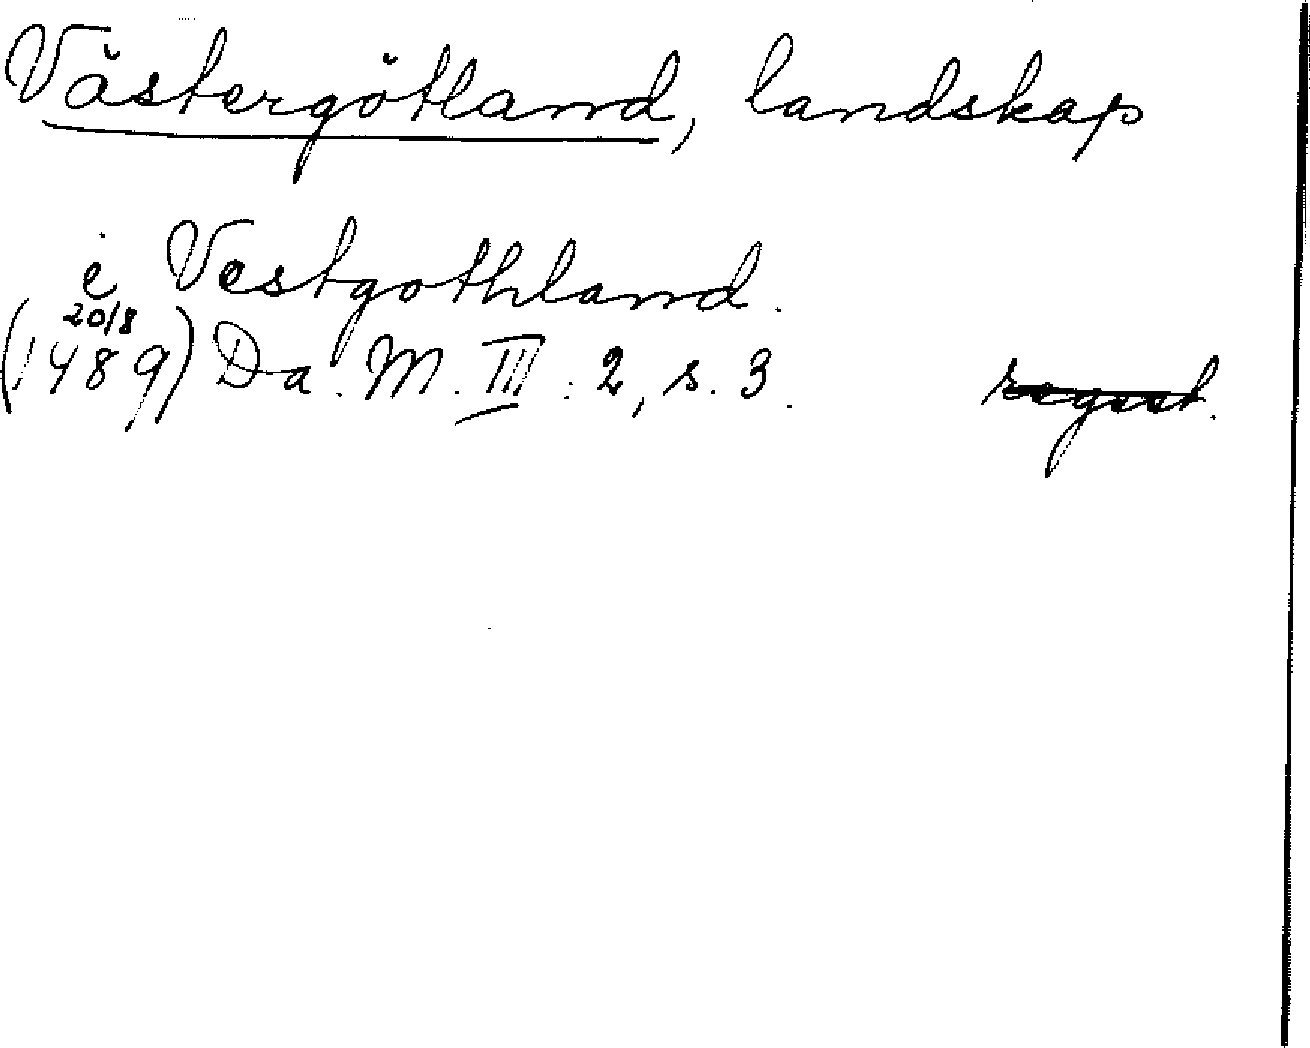 Västergötland, landskap
i Vestgothland.
20/8
(1489) Da. M. III : 2, s. 3. regest.